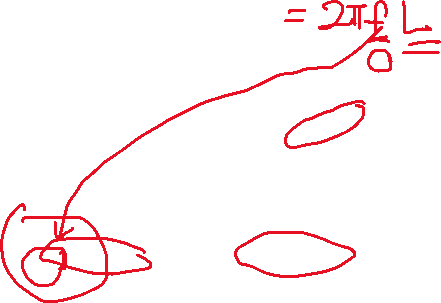 = 2πf L
0